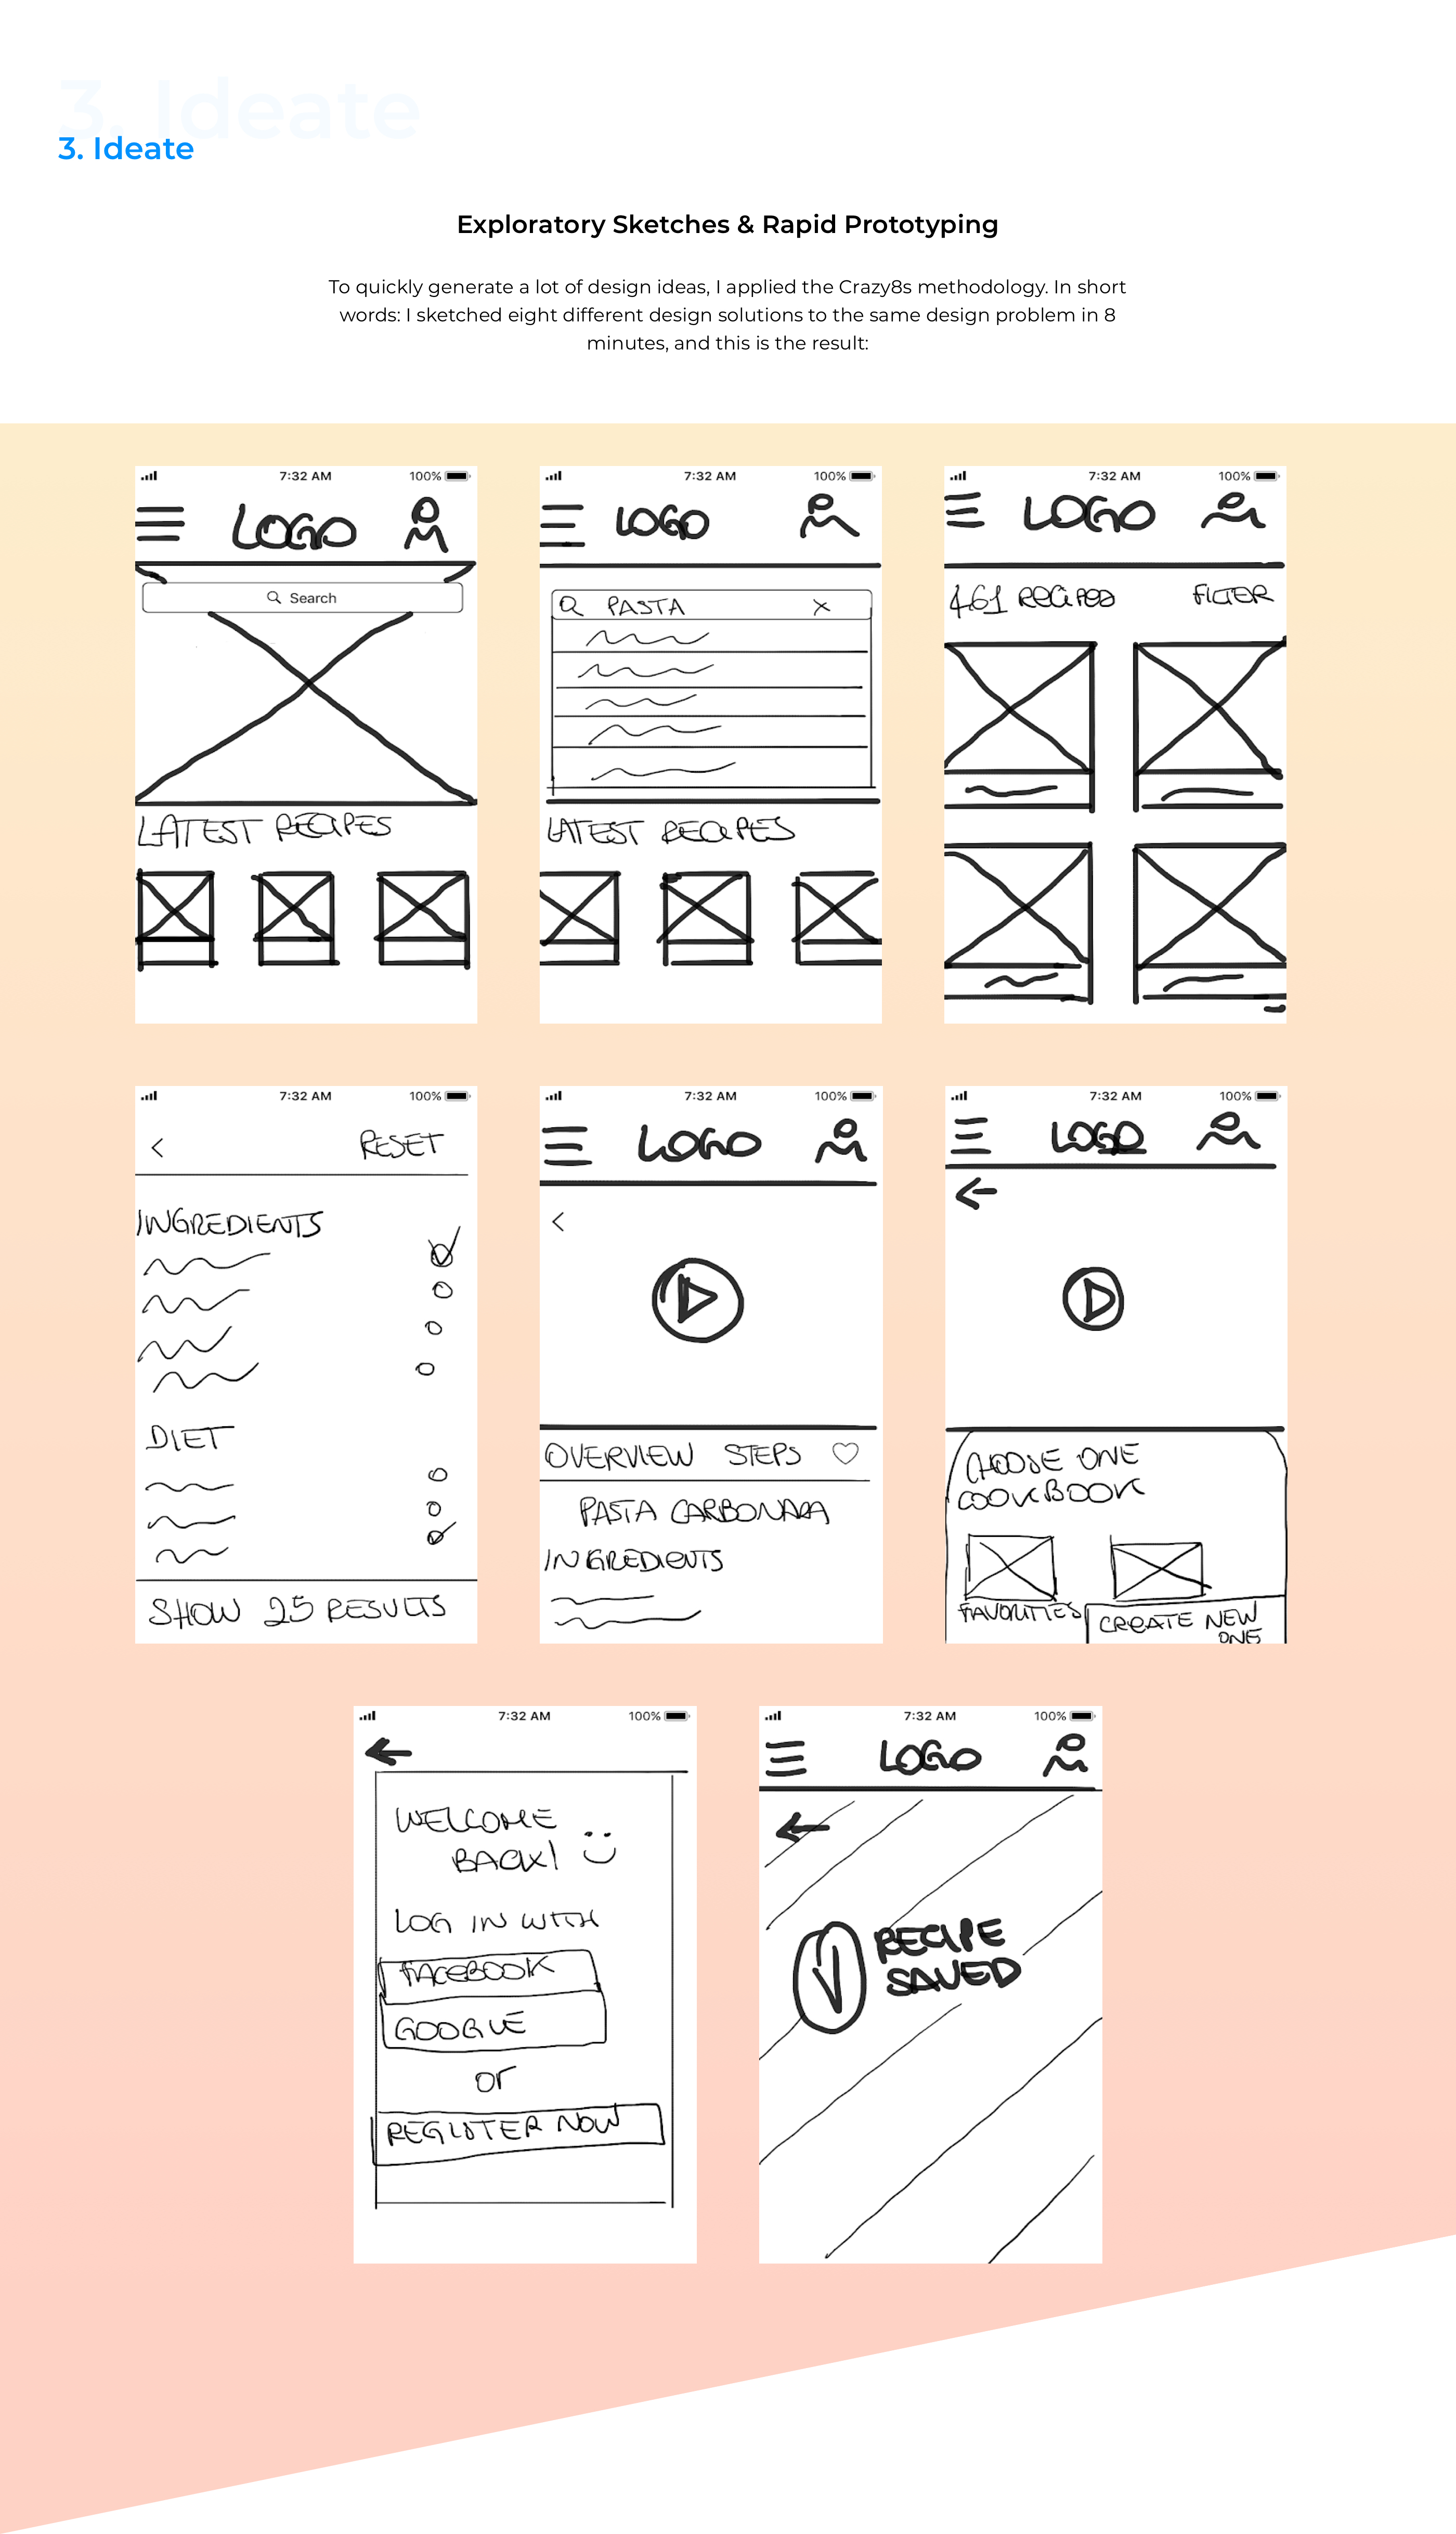 3. Ideate
3. Ideate
Exploratory Sketches & Rapid Prototyping
To quickly generate a lot of design ideas, I applied the Crazy8s methodology. In short
words: I sketched eight different design solutions to the same design problem in 8
minutes, and this is the result:
7:32 AM 100%
LOGO
Search
LATEST RECIPES
7:32 AM 100%
LOGO
PASTA X
LATEST RECIPES
7:32 AM 100%
LOGO
461 RECIPES FILTER
7:32 AM 100%
< RESET
INGREDIENTS
DIET
SHOW 25 RESULTS
7:32 AM 100%
LOGO
<
OVERVIEW STEPS
PASTA CARBONARA
INGREDIENTS
7:32 AM 100%
LOGO
CHOOSE ONE
COOKBOOK
FAVORITIES
CREATE NEW
ONE
7:32 AM 100%
WELCOME
BACK!
LOG IN WITH
FACEBOOK
GOOGLE
or
REGISTER NOW
7:32 AM 100%
LOGO
RECIPE
SAVED